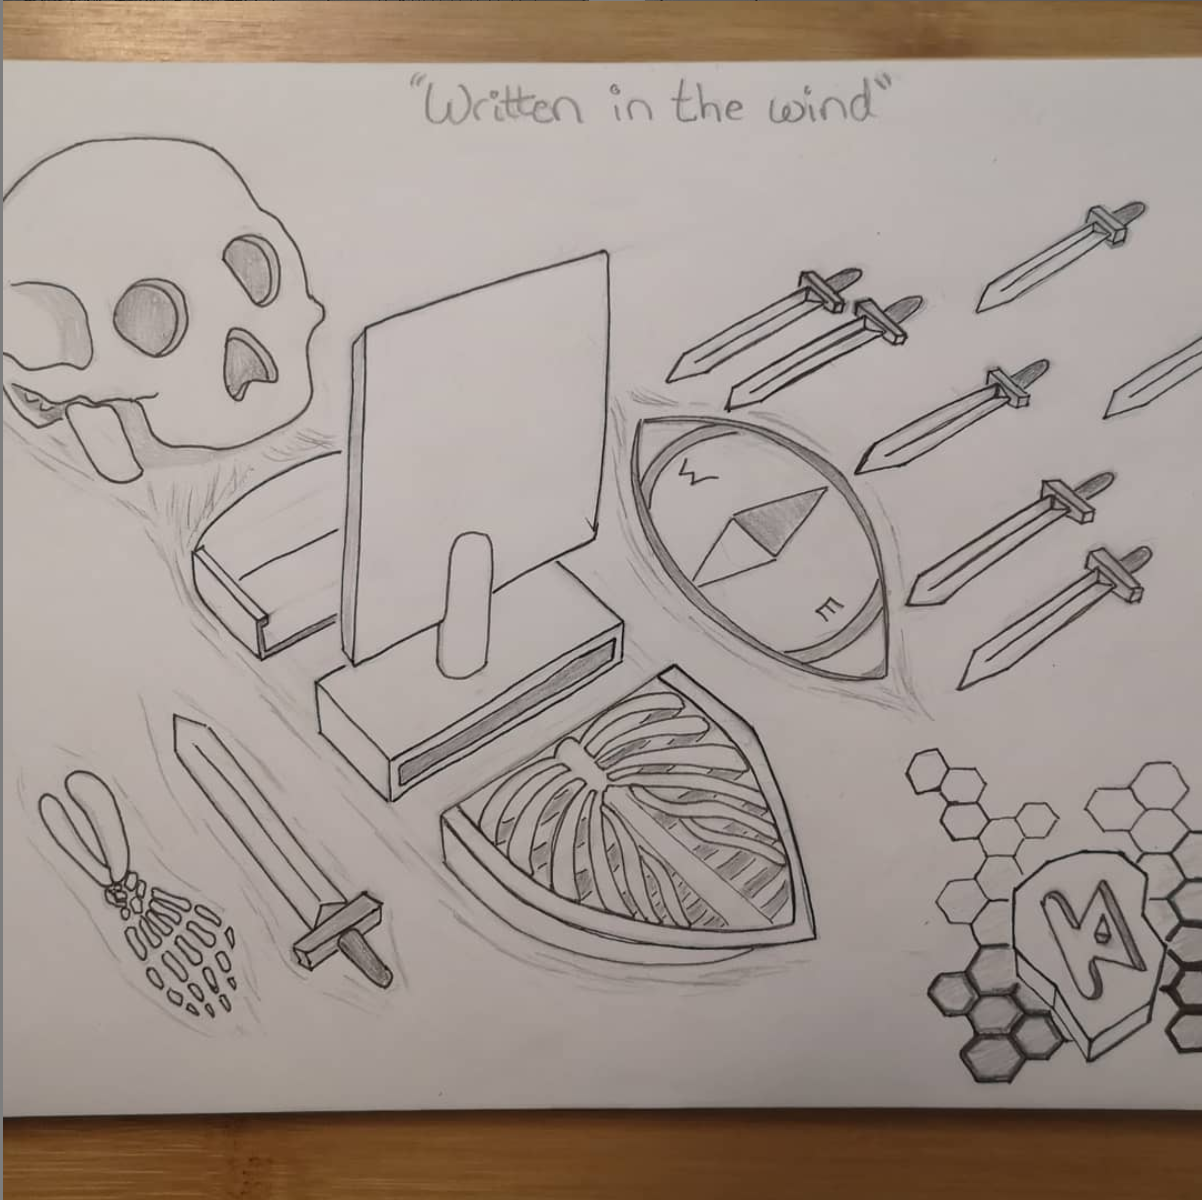 "Written in the wind"
W
E